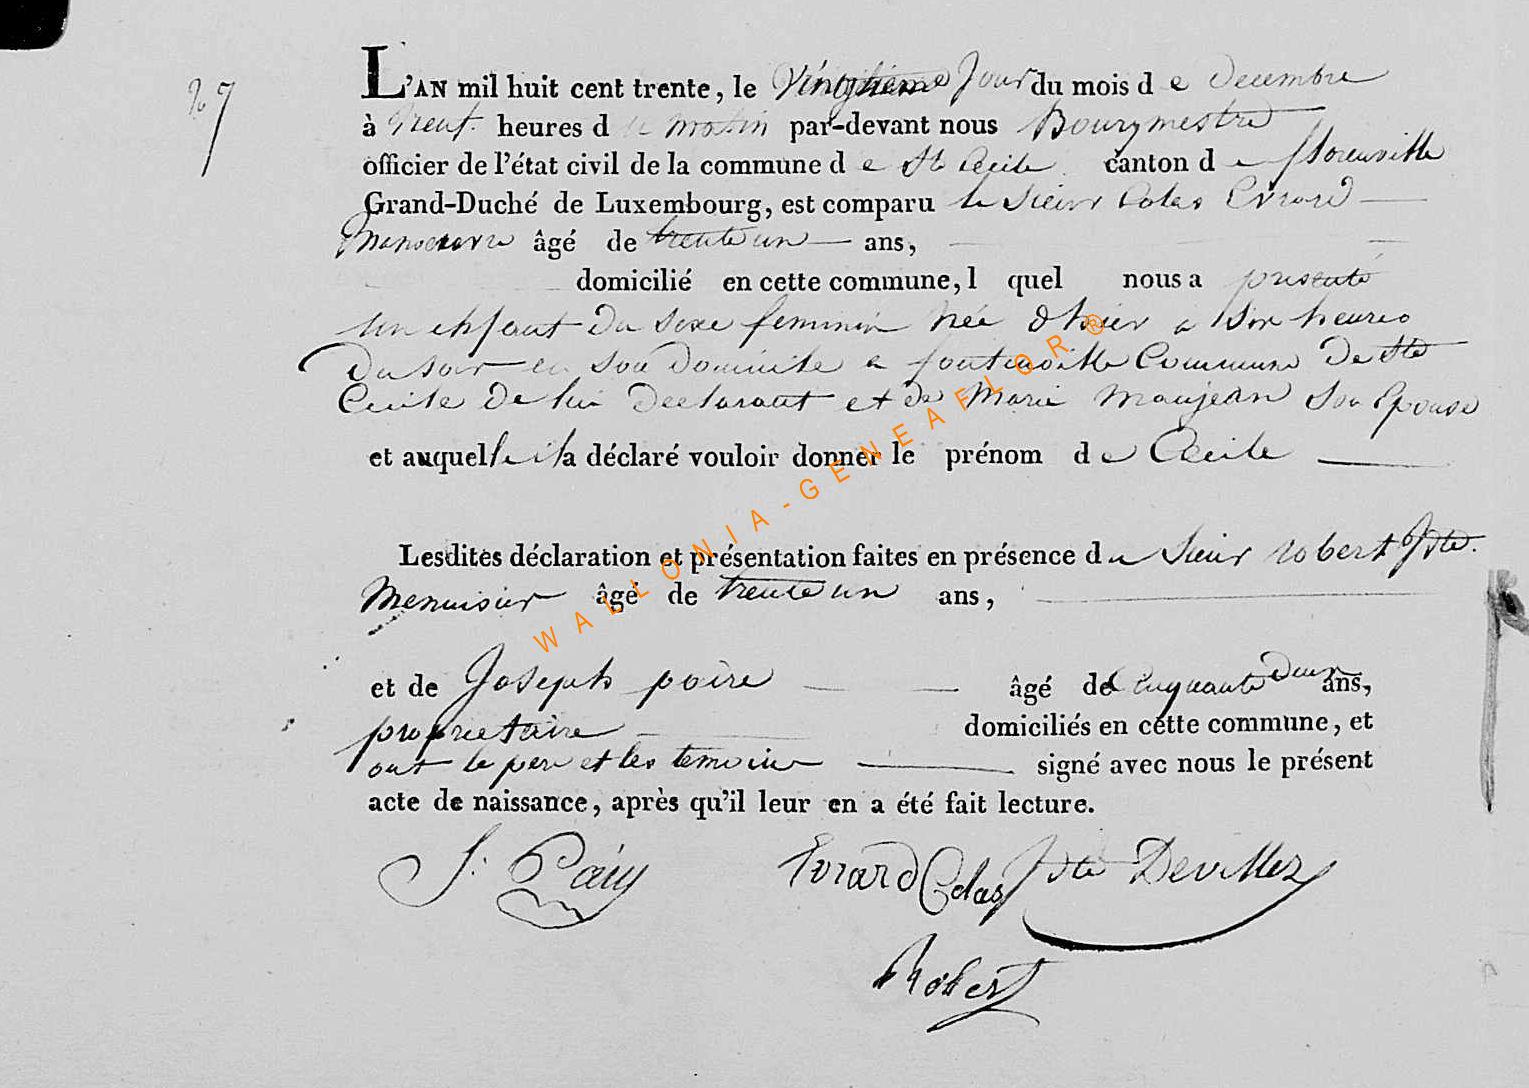 27
L'AN mil huit cent trente, le vingtieme jour du mois d e decembre
à neuf heures d u matin par-devant nous Bourgmestre
officier de l'état civil de la commune d e Ste Cecile canton d e florenville
Grand-Duché de Luxembourg, est comparu le Sieur Colas Evrard
manoeuvre âgé de trente un ans,
domicilié en cette commune, l quel nous a presenté
un enfant du sexe feminin née d hier a six heures
du soir en son domicile a fontenoille Commune de Ste
Cecile de lui declarant et de Marie maujean son Epouse
et auquelle il a déclaré vouloir donner le prénom d e Cecile
Lesdites déclaration et présentation faites en présence d u Sieur robert Jste.
menuisier âgé de trente un ans,
et de Joseph poire âgé de Cinquante deux ans,
proprietaire domiciliés en cette commune, et
ont le pere et les temoins signé avec nous le présent
acte de naissance, après qu'il leur en a été fait lecture.
Evrard Colas Jste Devillez
Robert
WALLONIA-GENEAFLOR®